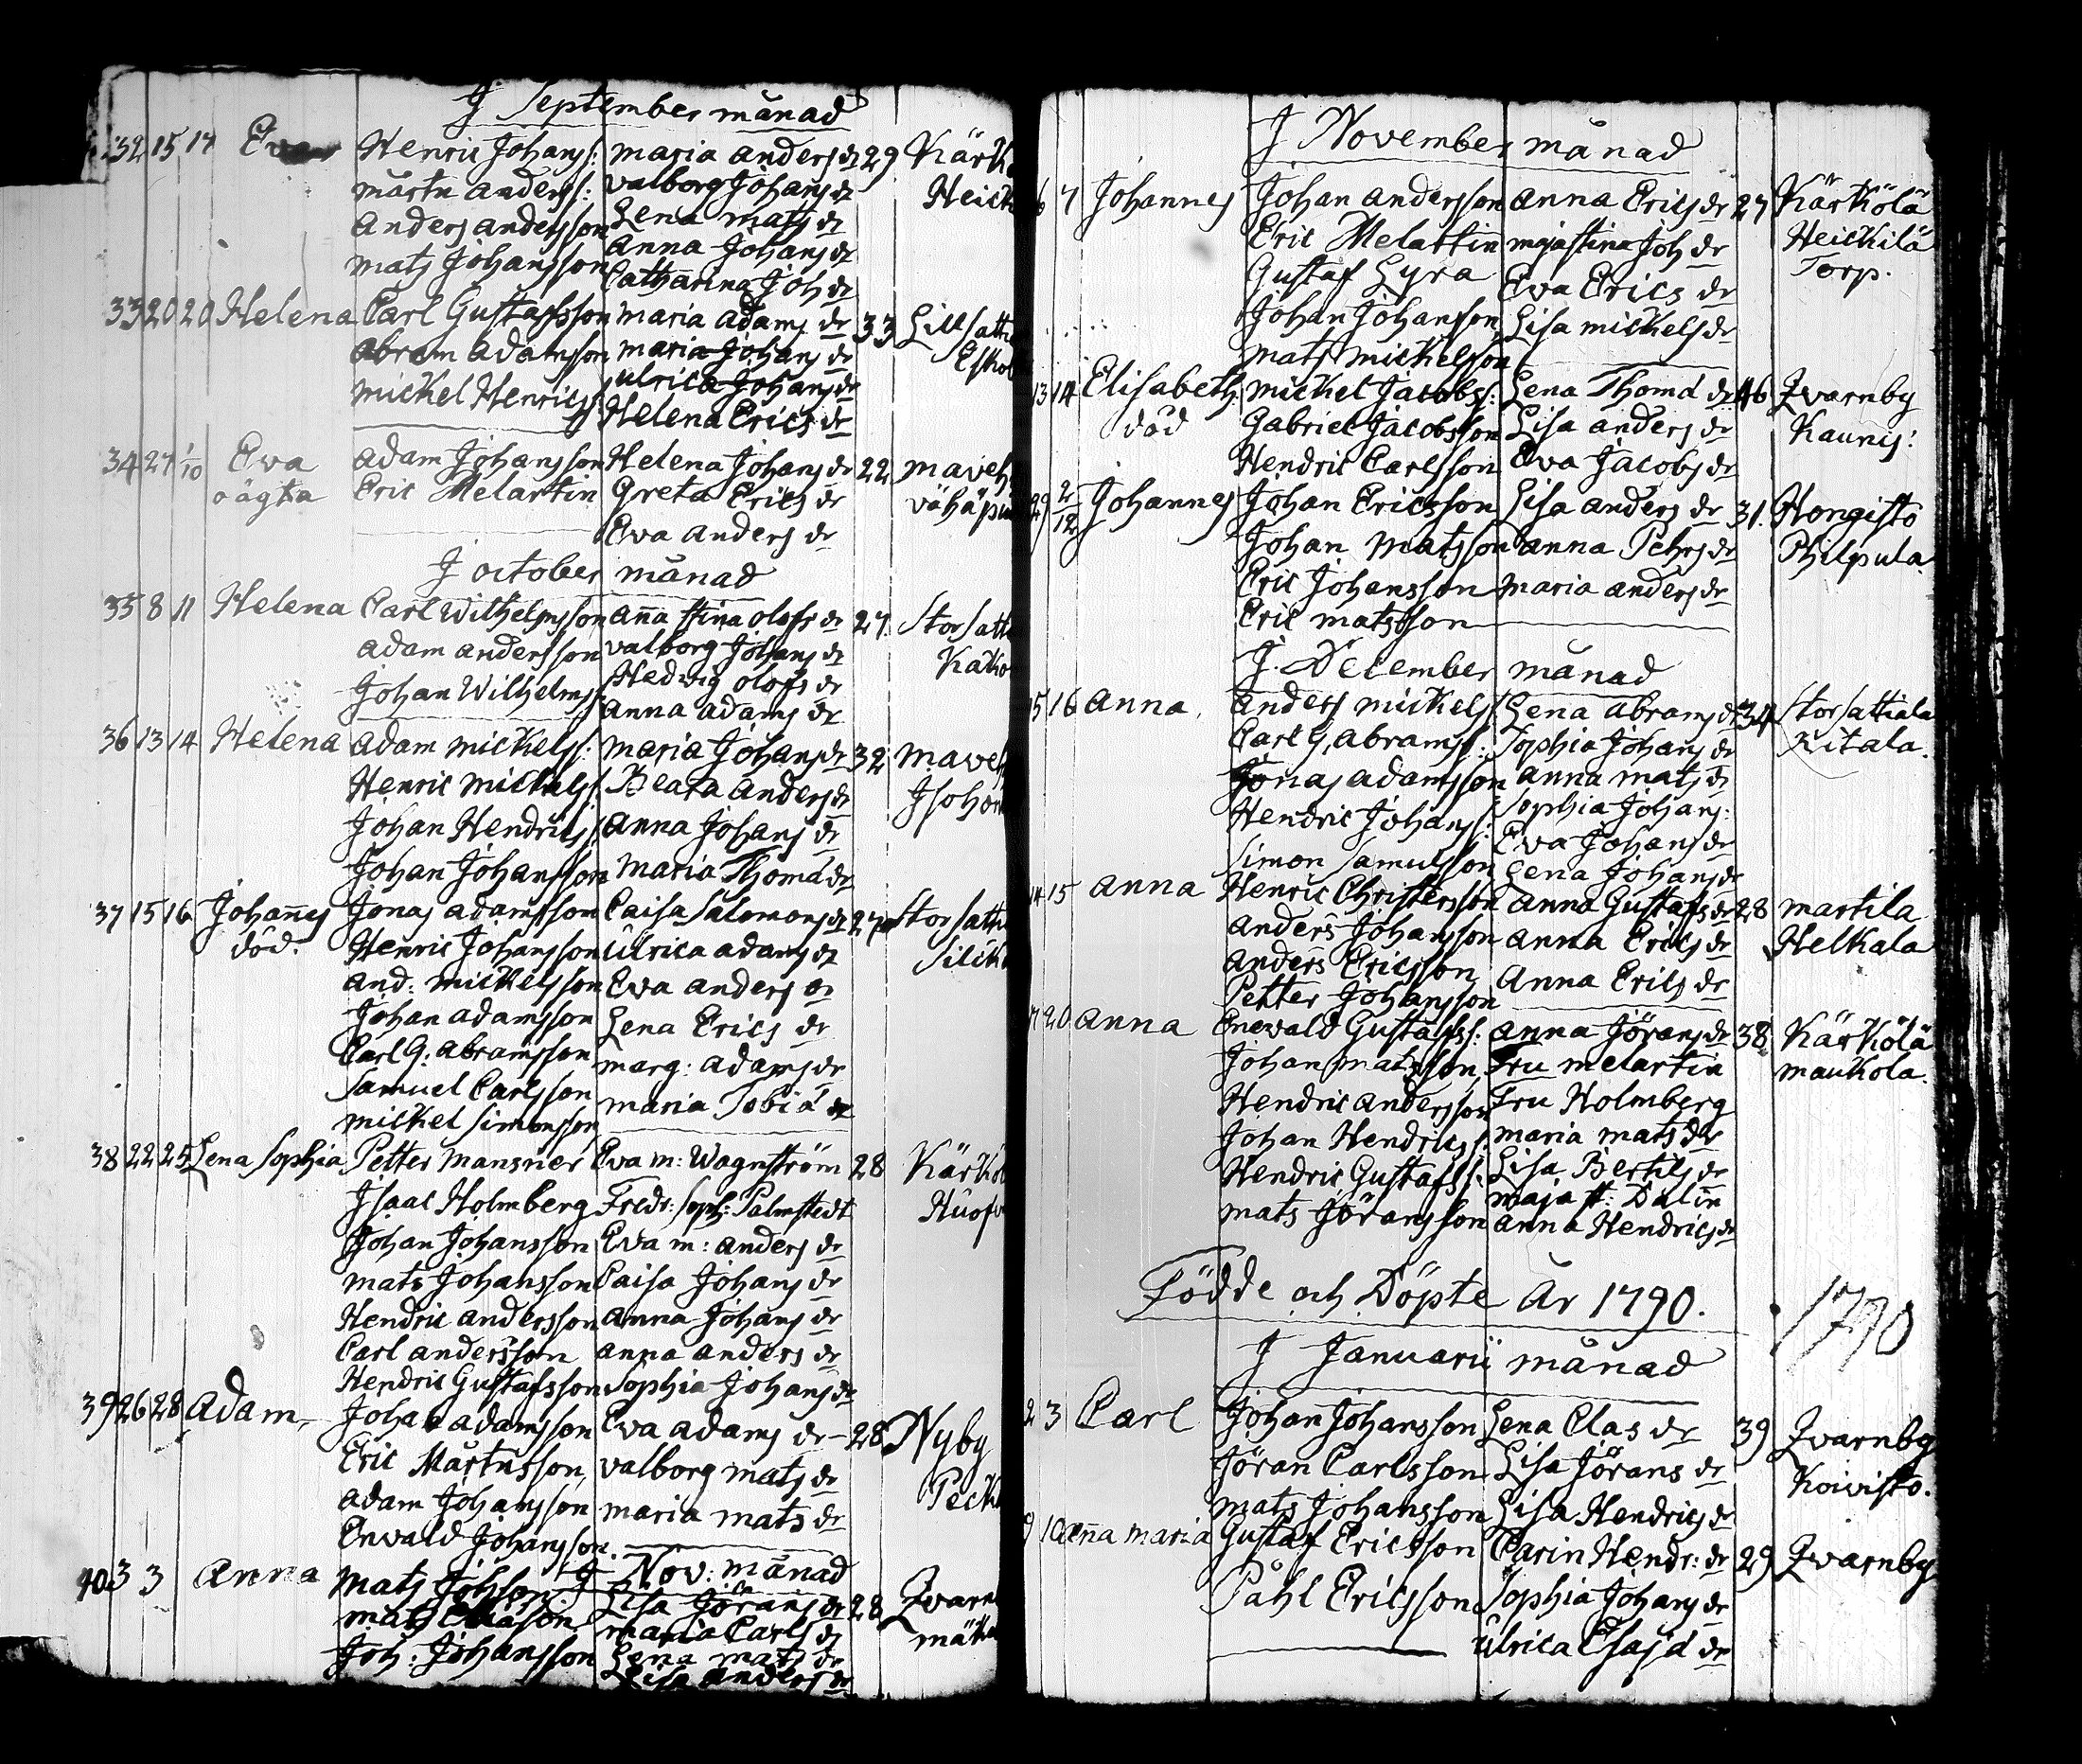 J September månad
32 15 17 Eva Henric Johanss: Maria anders dr 29 Kärk
mårtn anderss: valborg Johans dr Heick
anders andersson Lena mats dr
mats Johansson anna Johans dr
Catharina Joh dr
33 20 20 Helena Carl Gustafsson maria adams dr 33 Lill satti
abram adamsson maria Johans dr Eskol
mickel Henricss: ulrica Johans dr
Helena Erics dr
34 27 1/10 Eva adam Johansson Helena Johans dr 22 maveh
oägta Eric Melartin Greta Erics dr vähäpu
Eva anders dr
J october månad
35 8 11 Helena Carl Wilhelmsson anna stina olofs dr 27 Stor satti
adam andersson valborg Johans dr Kako
Johan Wilhelmss: Hedvig olofs dr
anna adams dr
36 13 14 Helena adam mickelss: maria Johans dr 32 maveh
Henric mickelss: Beata anders dr Isoho
Johan Hendricss: anna Johans dr
Johan Johansson Maria Thoma dr
37 15 16 Johannes Jonas adamsson Caisa Salomons dr 27 Stor satti
död. Henric Johansson Ulrica adams dr Silck
and: mickelsson Eva anders dr
Johan adamsson Lena Erics dr
Carl G: abramsson marg: adams dr
Samuel Carlsson maria Tobia dr
mickel Simonsson
38 22 25 Lena Sophia Petter Mansner Eva m: Wagnström 28 Kärkö
Isaac Holmberg Fredr: Soph: Palmstedt Huof
Johan Johansson Eva m: anders dr
mats Johansson Caisa Johans dr
Hendric andersson anna Johans dr
Carl andersson anna anders dr
Hendric Gustafsson Sophia Johans dr
39 26 28 adam Johan adamsson Eva adams dr 28 Nyby
Eric Mårtnsson valborg mats dr Peck
adam Johansson maria mats dr
Enwald Johansson
J Nov: månad
40 3 3 anna Mats Johsson Lisa Jörans dr 28 Qvarn
mats maria Carls dr
Joh: Johansson Lena mats dr
Lisa anders dr
J November månad
6 7 Johannes Johan andersson anna Erics dr 27 Kärkölä
Eric Melartin maja stina Joh dr Heickilä
Gustaf Lyra Eva Erics dr Torp.
Johan Johansson Lisa mickels dr
mats mickelsson
13 14 Elisabeth mickel Jacobss: Lena Thoma dr 46 Qvarnby
död Gabriel Jacobsson Lisa anders dr Kaunis:
Hendric Carlsson Eva Jacobs dr
29 2/12 Johannes Johan Ericsson Lisa anders dr 31. Hongisto
Johan Matsson anna Pehrs dr Philpula.
Eric Johansson maria anders dr
Eric matsson
J. December månad
15 16 anna anders mickelss: Lena abrams dr 34 Stor Sattiala
Carl G, abramss: Sophia Johans dr Kitala.
Jonas adamsson anna mats dr
Hendric Johanss: Sophia Johans:
Simon Samulsson Eva Johans dr
Lena Johans dr
14 15 anna Henric Christersson anna Gustafs dr 28 martila
anders Johansson anna Erics dr Helkala
anders Ericsson Anna Erics dr
Petter Johansson
17 20 anna Enewald Gustafss: anna Jörans dr 38 Kärkölä
Johan matsson Fru Melartin maukola.
Hendric andersson Fru Holmberg
Johan Hendricss: maria mats dr
Hendric Gustafss: Lisa Bertils dr
mats Jöransson maja st: Dalin
anna Hendrics dr
Födde och Döpte År 1790. 1790
J Januarii månad
2 3 Carl Johan Johansson Lena Clas dr 39 Qvarnby
Jöran Carlsson Lisa Jörans dr Koivisto.
mats Johansson Lisa Hendrics dr
9 10 anna maria Gustaf Ericsson Carin Hendr: dr 29 Qvarnby
Påhl Ericsson Sophia Johans dr
ulrica Esaja dr